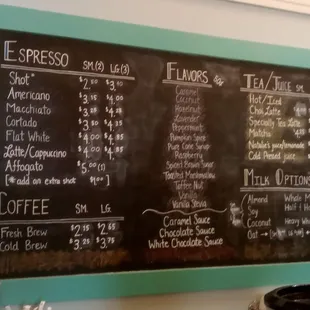 ESPRESSO SM.(2) LG.(3)
Shot* $2.50 $3.40
Americano $3.15
Macchiato $3.25 $4
Cortado $3.50 $4
Flat White $4.00 $4
Latte/Cappuccino $4.00 $4
Affogato $5.00 (1)
[*add an extra shot $1.00]
COFFEE SM. LG.
Fresh Brew $2.15 $2.65
Cold Brew $3.25 $3.75
FLAVORS
Caramel
Coconut
Hazelnut
Lavender
Peppermint
Pumpkin Spice
Pure Cane Syrup
Raspberry
Sweet Brown Sugar
Toasted Marshmallow
Toffee Nut
Vanilla
Vanilla Stevia
Caramel Sauce
Chocolate Sauce
White Chocolate Sauce
TEA/JUICE SM.
Hot/Iced
Chai Latte
Specialty Tea Latte
Matcha
Natalie's juice/lemonade
Cold Pressed juice
MILK OPTIONS
Almond Whole
Soy Half &
Coconut Heavy Wh
Oat